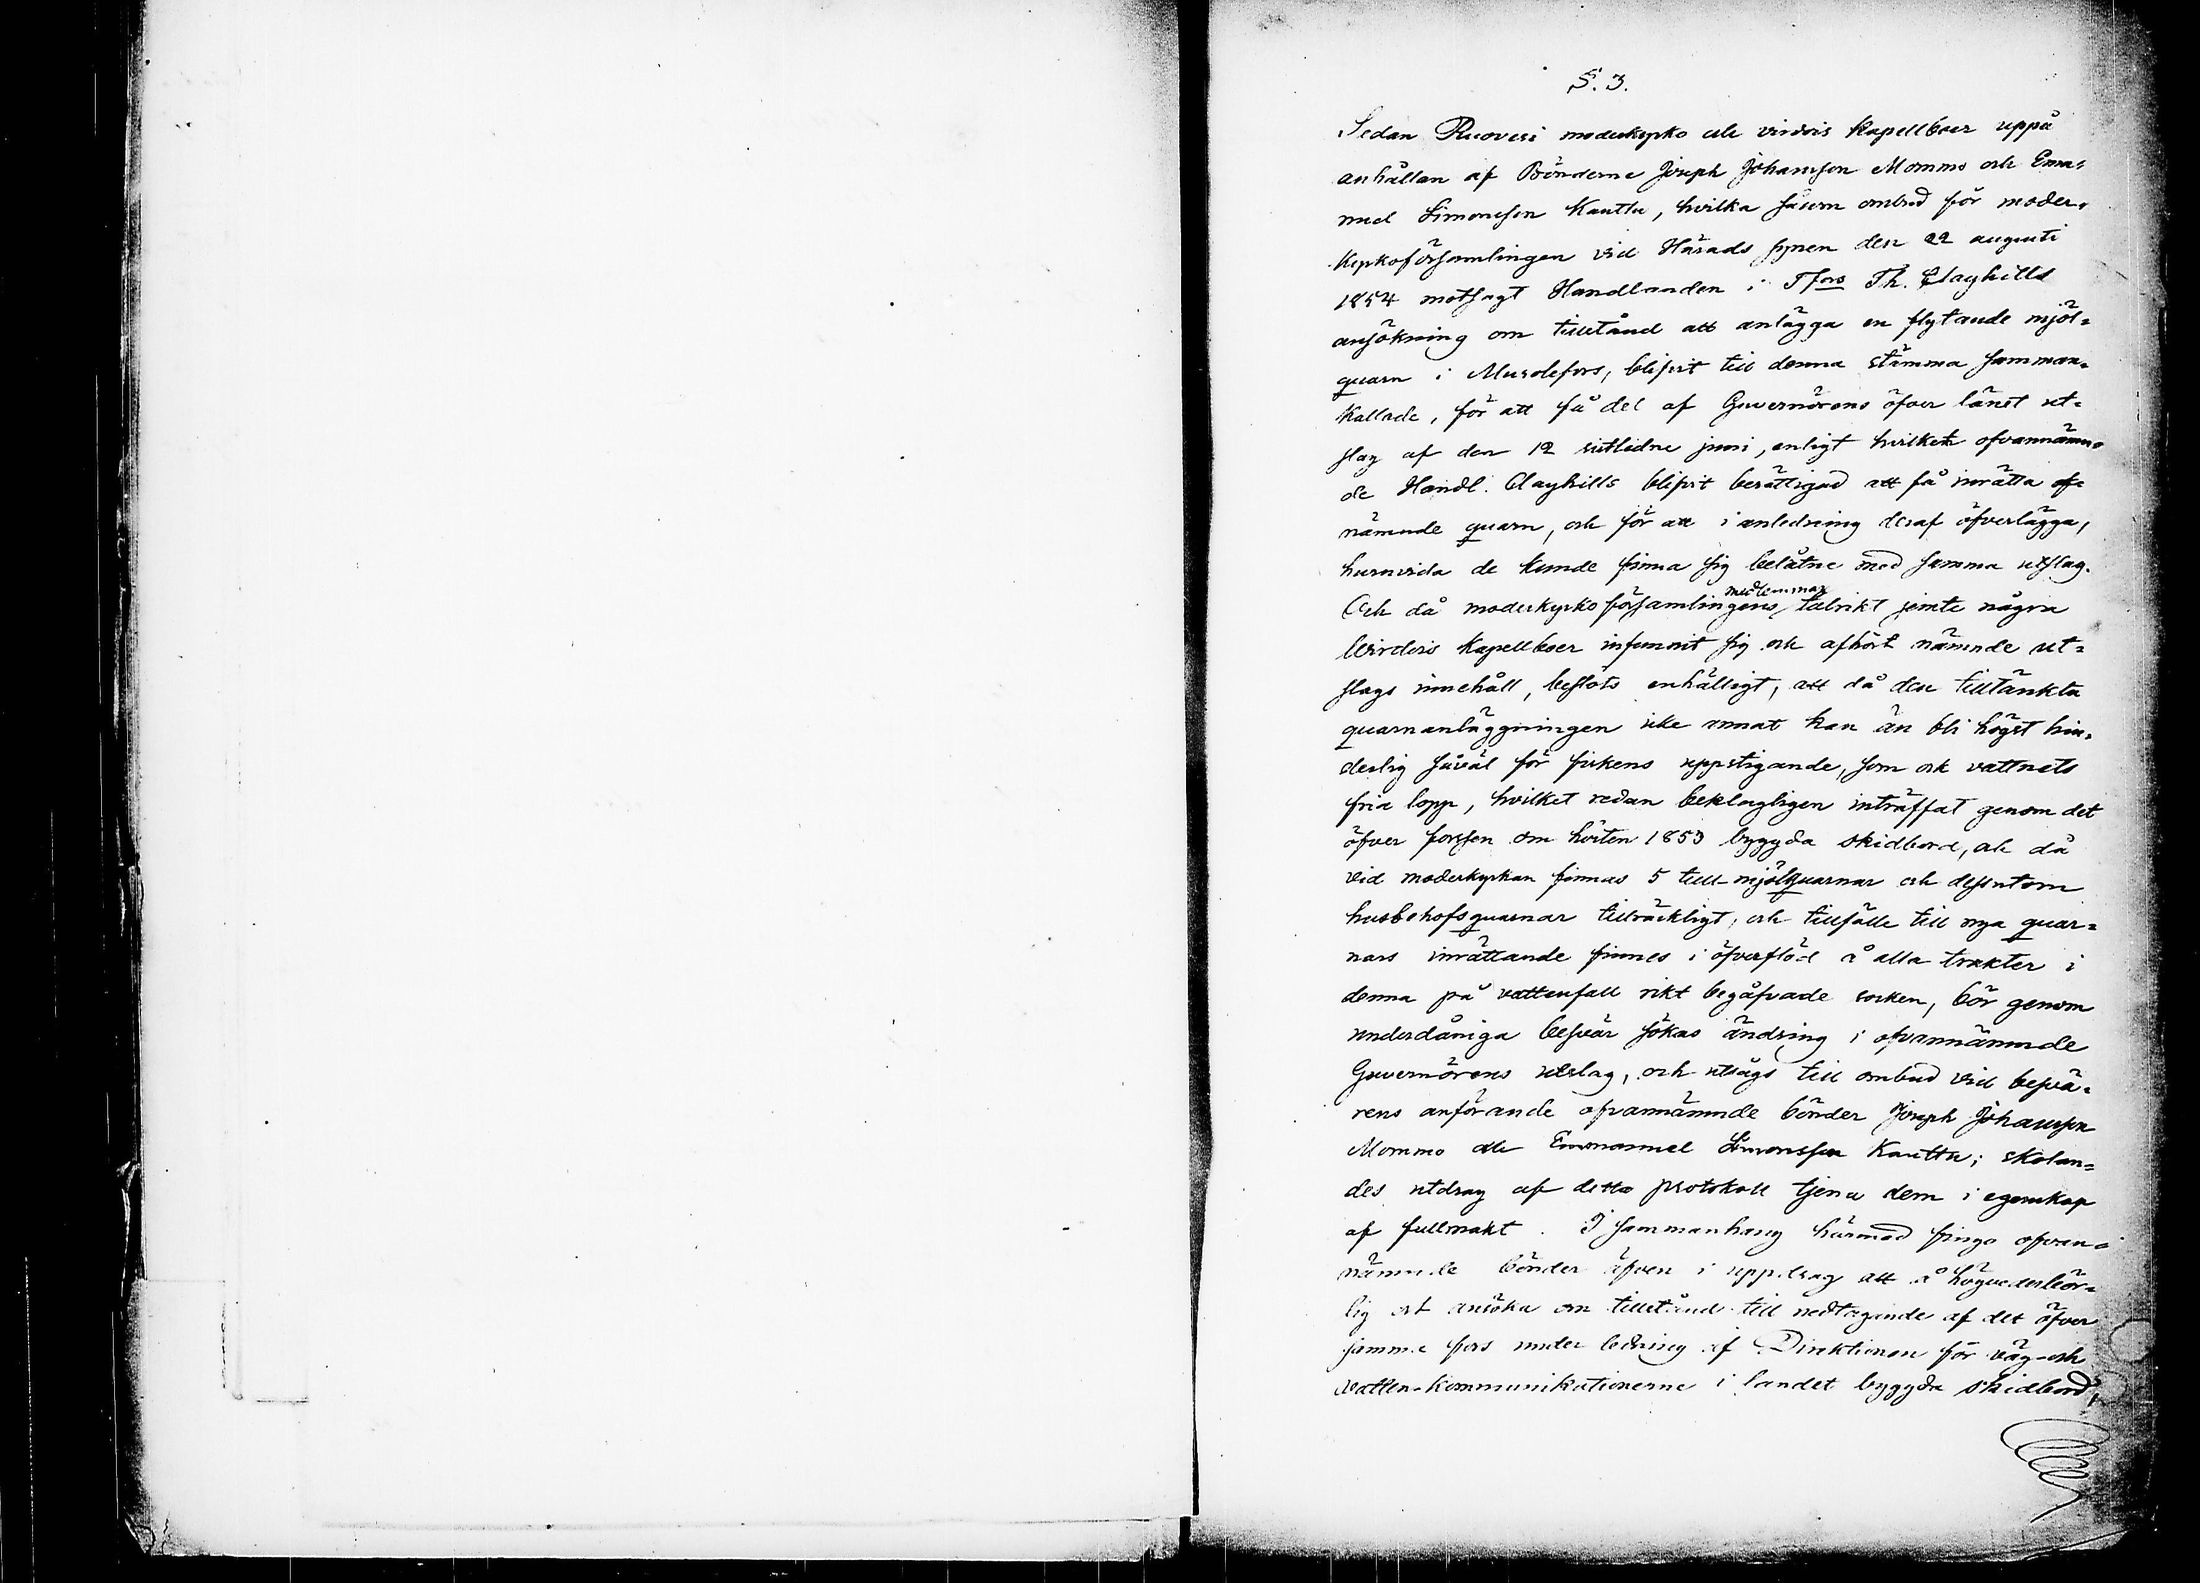 §. 3.
Sedan Ruovesi moderkyrko och virdois Kapellboer uppå
anhållan af Bönderne Joseph Johansson Mommo och Ema-
nuel Simonsson Kauttu, hvilka såsom ombud för moder-
Kyrkoförsamlingen vid Härads synen den 22 augusti
1854 motsagt Handlanden i Tfors Th. Clayhills
ansökning om tillstånd att anlägga en flytande mjöl-
quarn i Murolefors, blifvit till denna stämma samman-
Kallade, för att få del af Guvernörens öfver länet ut-
slag af den 12 sistlidne juni, enligt hvilket ofvannämn-
de Handl. Clayhills blifvit berättigad att få inrätta of-
nämnde quarn, och för att i anledning deraf öfverlägga,
huruvida de kunde finna sig belåtne med samma utslag.
Och då moderkyrko församlingens medlemmar talrikt jemte några
Virdois Kapellboer infunnit sig och afhört nämnde ut-
slags innehåll, beslöts enhälligt, att då den tilltänkta
quarnanläggningen icke annat kan än bli högst hin-
derlig såväl för fiskens uppstigande, som ock vattnets
fria lopp, hvilket redan beklagligen inträffat genom det
öfver forssen om hösten 1853 byggda skidbord, och då
vid moderkyrkan finnas 5 tull-mjölquarnar och dessutom
husbehofsquarnar tillräckligt, och tillfälle till nya quar-
nars inrättande finnes i öfverflöd å alla trakter i
denna på vattenfall rikt begåfvade socken, bör genom
underdåniga besvär sökas ändring i ofvannämnde
Guvernörens utslag, och utsågs till ombud vid besvä-
rens anförande ofvannämnde bönder Joseph Johansson
Mommo och Emmanuel Simonsson Kauttu; skolan-
des utdrag af detta protokoll tjena dem i egenskap
af fullmakt. I sammanhang härmed fingo ofvan-
nämnde bönder äfven i uppdrag att å högvederbör-
lig ort ansöka om tillstånd till nedtagande af det öfver
samma fors under ledning af Direktionen för väg- och
vatten-kommunikationerne i landet byggda skidbord,